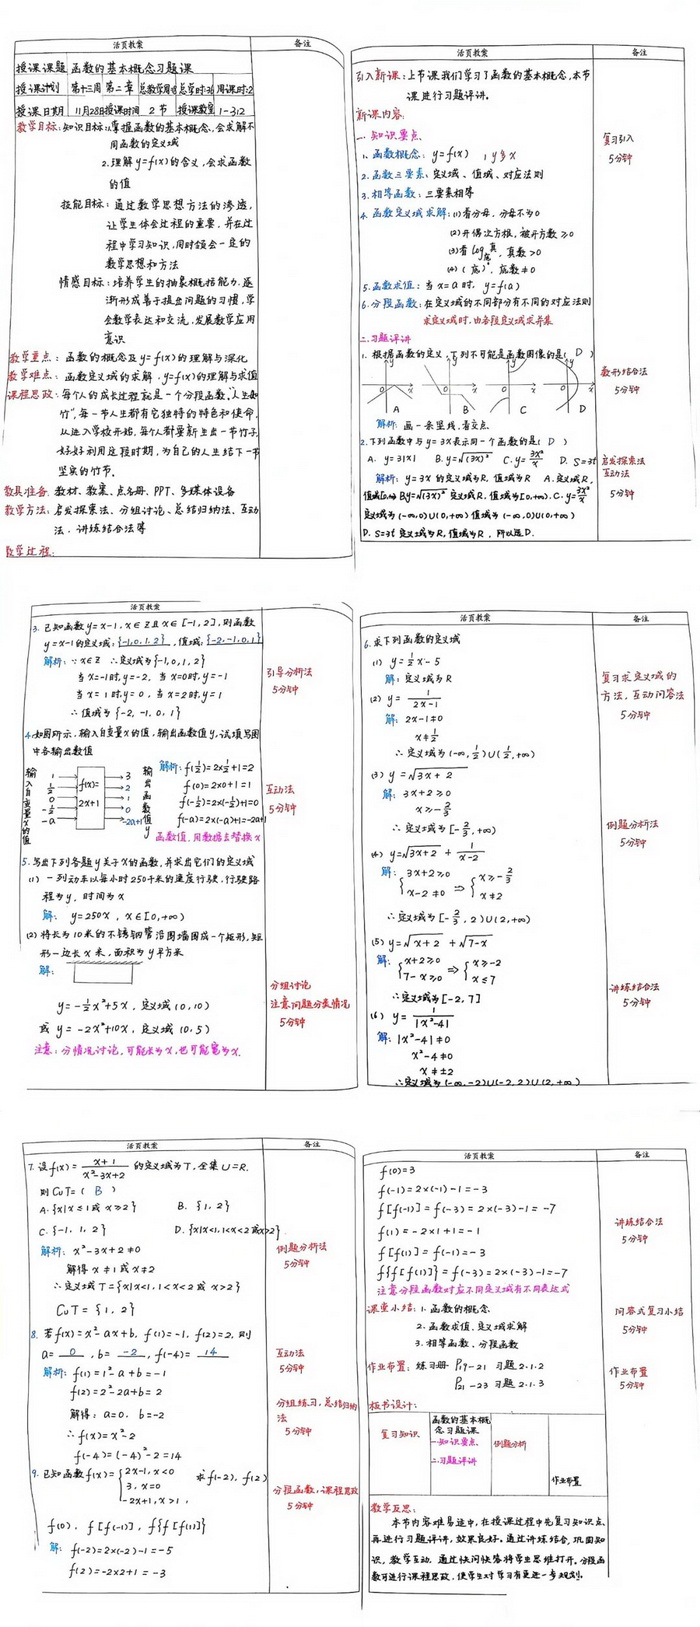 活页教案
备注
授课课题 函数的基本概念习题课
授课计划 第十三周 第二章 总教学周 总学时:36 周课时:2
授课日期 11月28日 授课时间 2节 授课教室 1-312
教学目标:知识目标:1.掌握函数的基本概念,会求解不
同函数的定义域
2.理解y=f(x)的含义,会求函数
的值
技能目标:通过数学思想方法的渗透,
让学生体会过程的重要,并在过
程中学习知识,同时领会一定的
数学思想和方法
情感目标:培养学生的抽象概括能力,逐
渐形成善于提出问题的习惯,学
会数学表达和交流,发展数学应用
意识
教学重点:函数的概念及y=f(x)的理解与深化
教学难点:函数定义域的求解,y=f(x)的理解与求值
课程思政:每个人的成长过程就是一个分段函数,“人生如
竹”,每一节人生都有它独特的特色和使命,
从进入学校开始,每个人都要新生出一节竹子,
好好利用这段时期,为自己的人生结下一节
坚实的竹节。
教具准备:教材、教案、点名册、PPT、多媒体设备
教学方法:启发探索法、分组讨论、总结归纳法、互动
法、讲练结合法等
教学过程:
活页教案
备注
引入新课:上节课我们学习了函数的基本概念,本节
课进行习题评讲。
新课内容:
一、知识要点
复习引入
5分钟
1、函数概念:y=f(x) 1y多x
2.函数三要素:定义域、值域、对应法则
3.相等函数:三要素相等
4.函数定义域求解:(1)看分母,分母不为0
(2)开偶次方根,被开方数≥0
(3)看log底真,真数>0
(4)(底)⁰,底数≠0
5.函数求值:当x=a时,y=f(a)
6.分段函数:在定义域的不同部分有不同的对应法则
求定义域时,由各段定义域求并集
二.习题评讲
1.根据函数的定义,下列不可能是函数图像的是( D )
数形结合法
5分钟
A B C D
解析:画一条竖线,看交点
2.下列函数中与y=3x表示同一个函数的是( D )
A. y=3|x| B. y=√(3x)² C. y=3x²/x D. S=3t
启发探索法
互动法
5分钟
解析:y=3x的定义域为R,值域为R A.定义域R,
值域[0,+∞) B.y=√(3x)² 定义域R,值域为[0,+∞). C.y=3x²/x
定义域为(-∞,0)∪(0,+∞)值域为(-∞,0)∪(0,+∞)
D. S=3t 定义域为R,值域为R,所以选D.
活页教案
备注
3.已知函数y=x-1,x∈Z且x∈[-1,2],则函数
y=x-1的定义域:{-1,0,1,2},值域:{-2,-1,0,1}
解析:∵x∈Z ∴定义域为{-1,0,1,2}
当x=-1时,y=-2,当x=0时,y=-1
当x=1时,y=0,当x=2时,y=1
∴值域为{-2,-1,0,1}
引导分析法
5分钟
4.如图所示,输入自变量x的值,输出函数值y,试填写图
中各输出数值
输入自变量x的值
1
1/2
0
-1/2
-a
f(x)=
2x+1
3
2
1
0
-2a+1
输出函数值y
解析:f(1/2)=2×1/2+1=2
f(0)=2×0+1=1
f(-1/2)=2×(-1/2)+1=0
f(-a)=2×(-a)+1=-2a+1
函数值,用数据去替换x
互动法
5分钟
5.写出下列各题y关于x的函数,并求出它们的定义域
(1)一列动车以每小时250千米的速度行驶,行驶路
程为y,时间为x
解:y=250x,x∈[0,+∞)
(2)将长为10米的不锈钢管沿围墙围成一个矩形,矩
形一边长x米,面积为y平方米
解:
y=-1/2x²+5x,定义域(0,10)
或y=-2x²+10x,定义域(0,5)
注意:分情况讨论,可能长为x,也可能宽为x.
分组讨论
注意问题分类情况
5分钟
活页教案
备注
6.求下列函数的定义域
(1) y=1/2x-5
解:定义域为R
(2) y=1/(2x-1)
解:2x-1≠0
x≠1/2
∴定义域为(-∞,1/2)∪(1/2,+∞)
复习求定义域的
方法,互动问答法
5分钟
(3) y=√(3x+2)
解:3x+2≥0
x≥-2/3
∴定义域为[-2/3,+∞)
例题分析法
5分钟
(4) y=√(3x+2)+1/(x-2)
解:{3x+2≥0 x-2≠0 ⇒ {x≥-2/3 x≠2
∴定义域为[-2/3,2)∪(2,+∞)
(5) y=√(x+2)+√(7-x)
解:{x+2≥0 7-x≥0 ⇒ {x≥-2 x≤7
∴定义域为[-2,7]
讲练结合法
5分钟
(6) y=1/|x²-4|
解:|x²-4|≠0
x²-4≠0
x≠±2
∴定义域为(-∞,-2)∪(-2,2)∪(2,+∞)
活页教案
备注
7.设f(x)=(x+1)/(x²-3x+2)的定义域为T,全集U=R,
则CuT=( B )
A.{x|x≤1或x≥2} B. {1,2}
C.{-1,1,2} D.{x|x<1,1<x<2或x>2}
解析:x²-3x+2≠0
解得x≠1或x≠2
∴定义域T={x|x<1,1<x<2或x>2}
CuT={1,2}
例题分析法
5分钟
8.若f(x)=x²-ax+b,f(1)=-1,f(2)=2,则
a=0,b=-2,f(-4)=14
解析:f(1)=1²-a+b=-1
f(2)=2²-2a+b=2
解得:a=0,b=-2
∴f(x)=x²-2
f(-4)=(-4)²-2=14
互动法
5分钟
分组练习,总结归纳
法
5分钟
9.已知函数f(x)={2x-1,x<0 3,x=0 -2x+1,x>1, 求f(-2),f(2)
f(0),f[f(-1)],f{f[f(1)]}
解:f(-2)=2×(-2)-1=-5
f(2)=-2×2+1=-3
分段函数,课程思政
5分钟
活页教案
备注
f(0)=3
f(-1)=2×(-1)-1=-3
f[f(-1)]=f(-3)=2×(-3)-1=-7
f(1)=-2×1+1=-1
f[f(1)]=f(-1)=-3
f{f[f(1)]}=f(-3)=2×(-3)-1=-7
注意分段函数对应不同定义域有不同表达式
讲练结合法
5分钟
课堂小结:1.函数的概念
2.函数求值,定义域求解
3.相等函数、分段函数
问答式复习小结
5分钟
作业布置:练习册P19-21 习题2.1.2
P21-23 习题2.1.3
作业布置
5分钟
板书设计:
复习知识
函数的基本概
念习题课
一.知识要点
二.习题评讲
例题分析
作业布置
教学反思:
本节内容难易适中,在授课过程中先复习知识点,
再进行习题评讲,效果良好。通过讲练结合,巩固知
识,教学互动,通过快问快答将学生思维打开。分段函
数可进行课程思政,使学生对学习有更进一步规划。